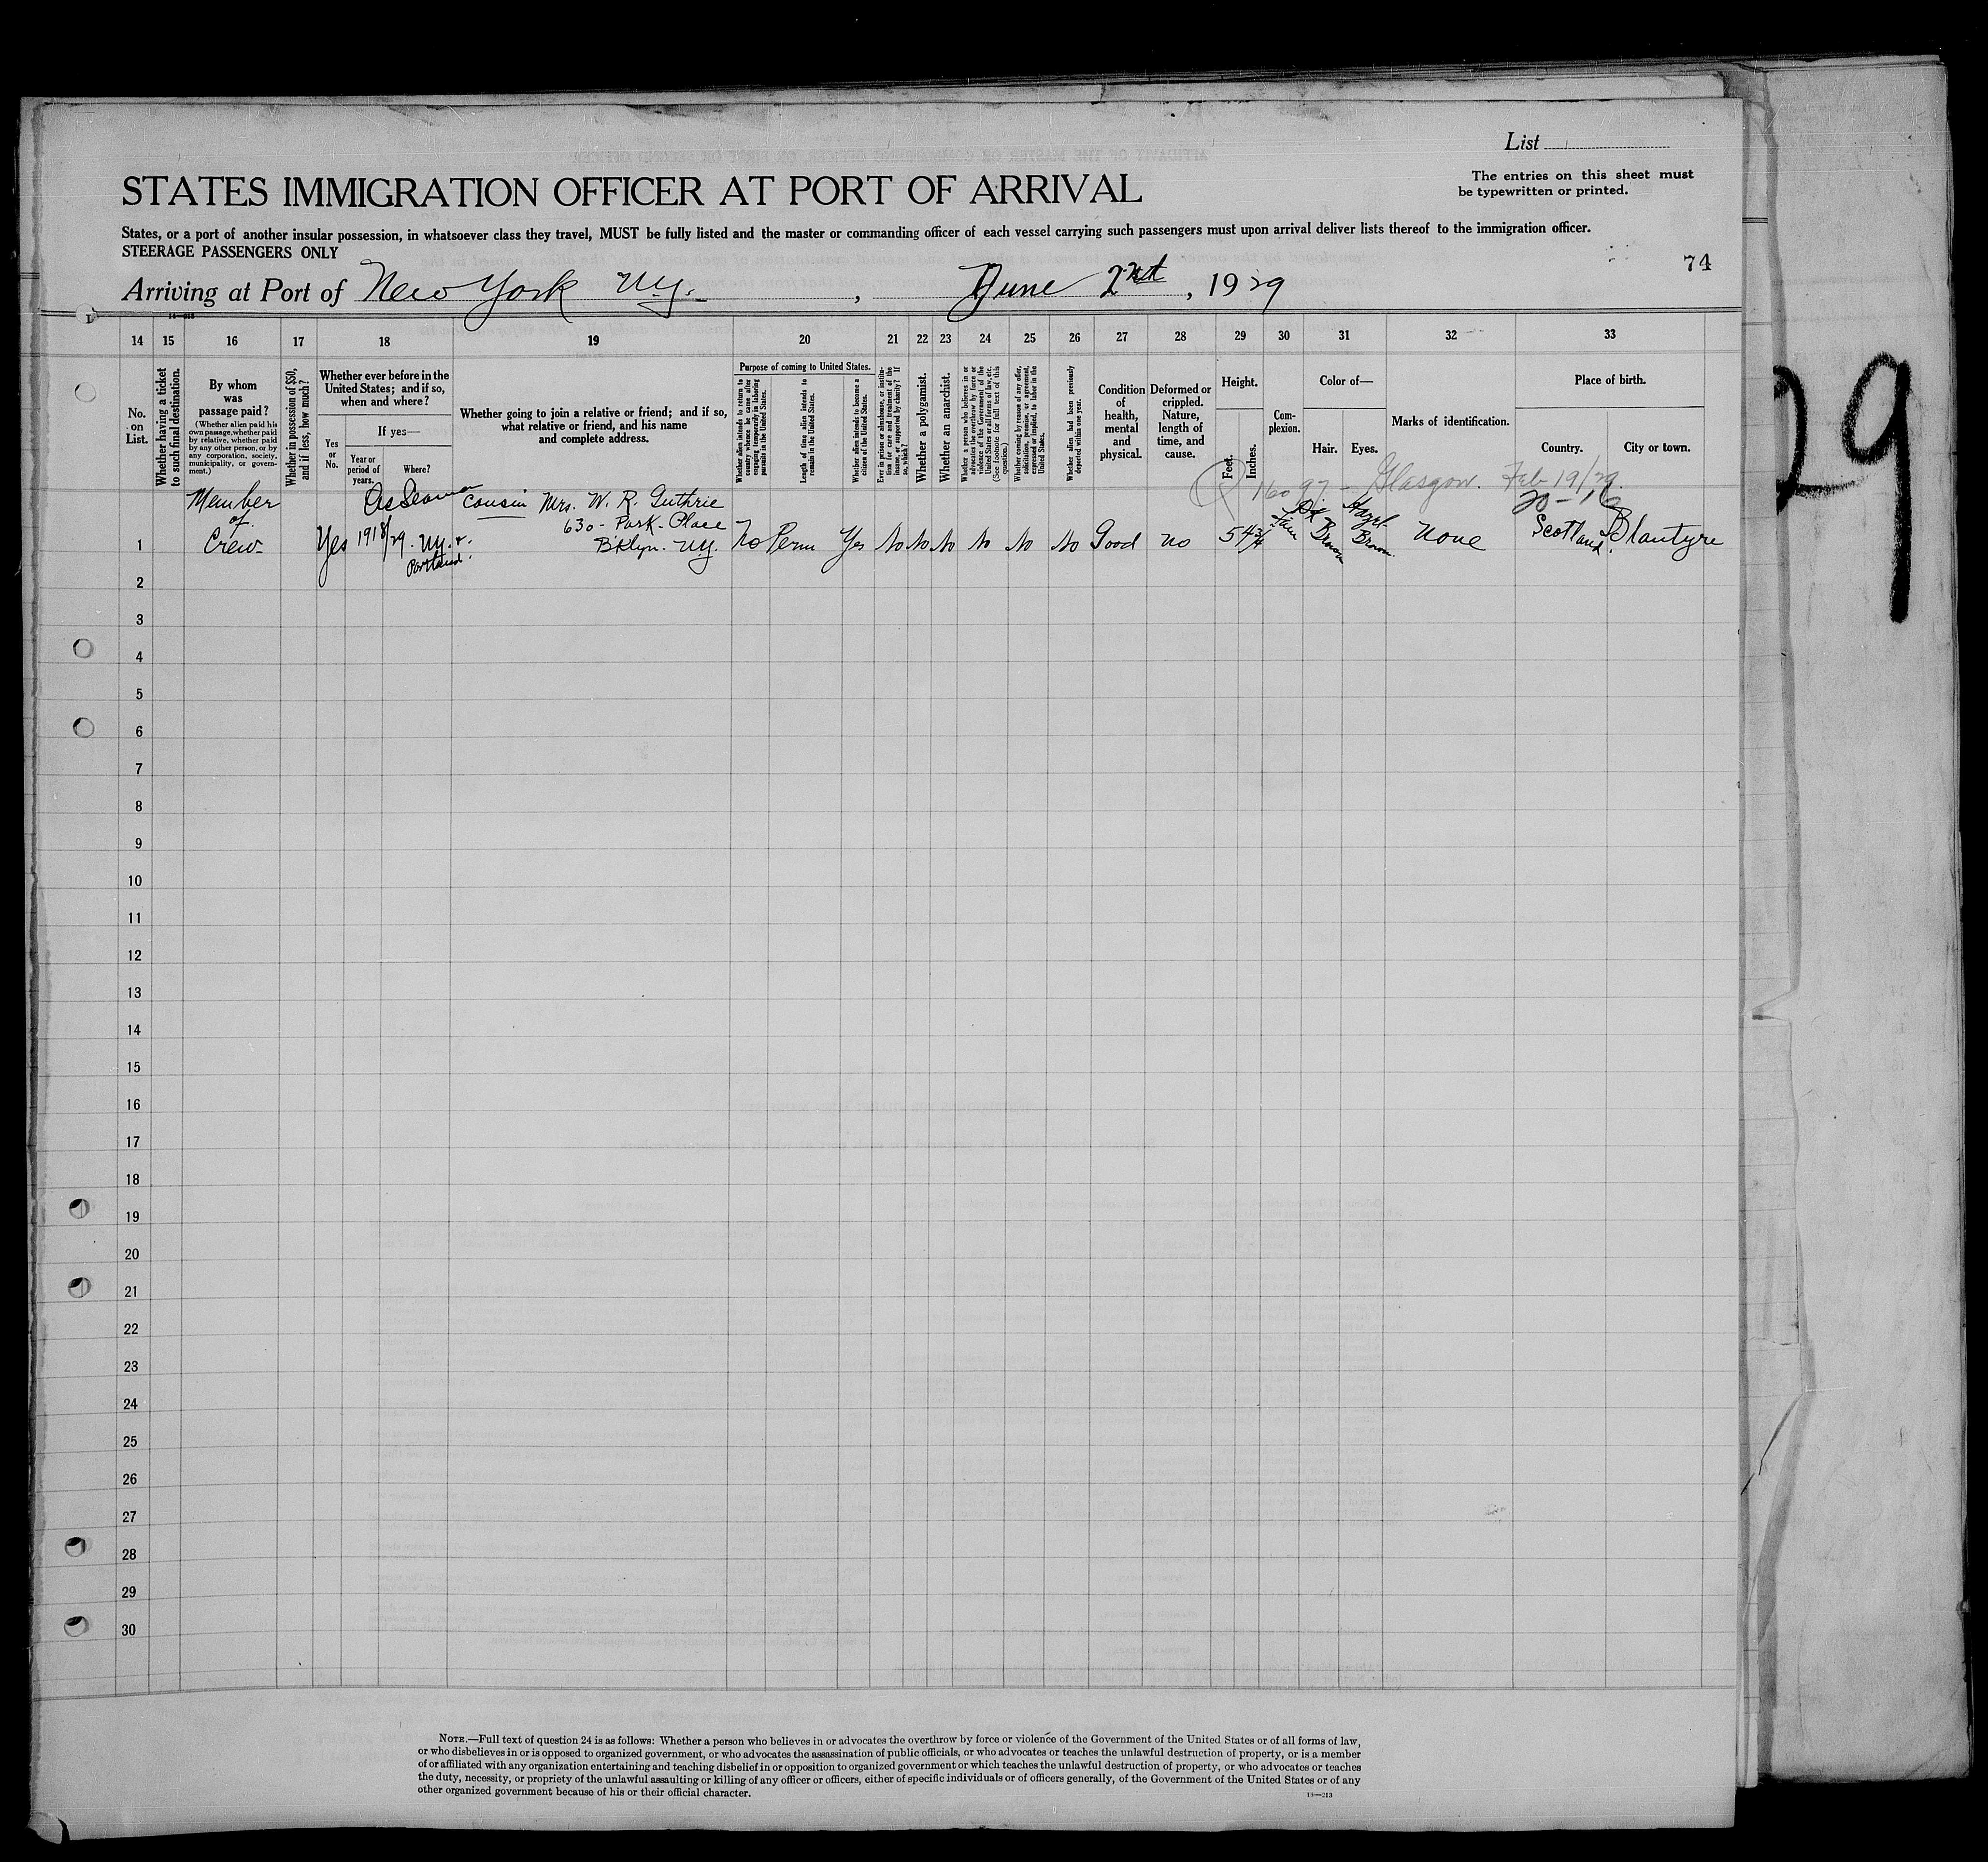 List
The entries on this sheet must
be typewritten or printed.
STATES IMMIGRATION OFFICER AT PORT OF ARRIVAL
States, or a port of another insular possession, in whatsoever class they travel, MUST be fully listed and the master or commanding officer of each vessel carrying such passengers must upon arrival deliver lists thereof to the immigration officer.
STEERAGE PASSENGERS ONLY
74
Arriving at Port of New York N.Y. , June 2nd , 1929
14 15 16 17 18 19 20 21 22 23 24 25 26 27 28 29 30 31 32 33
No. on List.
Whether having a ticket to such final destination.
By whom was passage paid?
(Whether alien paid his own passage, whether paid by relative, whether paid by any other person, or by any corporation, society, municipality, or government.)
Whether in possession of $50, and if less, how much?
Whether ever before in the United States; and if so, when and where?
If yes—
Yes or No.
Year or period of years.
Where?
Whether going to join a relative or friend; and if so, what relative or friend, and his name and complete address.
Purpose of coming to United States.
Whether alien intends to return to country whence he came after engaging temporarily in laboring pursuits in the United States.
Length of time alien intends to remain in the United States.
Whether alien intends to become a citizen of the United States.
Ever in prison or almshouse, or institution for care and treatment of the insane, or supported by charity? If so, which?
Whether a polygamist.
Whether an anarchist.
Whether a person who believes in or advocates the overthrow by force or violence of the Government of the United States or all forms of law, etc. (See footnote for full text of this question.)
Whether coming by reason of any offer, solicitation, promise, or agreement, expressed or implied, to labor in the United States.
Whether alien had been previously deported within one year.
Condition of health, mental and physical.
Deformed or crippled. Nature, length of time, and cause.
Height.
Feet.
Inches.
Complexion.
Color of—
Hair.
Eyes.
Marks of identification.
Place of birth.
Country.
City or town.
Glasgow. Feb 19/29.
Member of Crew
As Seaman
cousin Mrs. W. R. Guthrie
630 - Park - Place
Bklyn. N.Y.
1 Yes 1918/29. N.Y. & Portland. No Perm Yes No No No No No No Good no 5 4 3/4 Fair Dk Brown Hazel Brown None Scotland. Blantyre
2
3
4
5
6
7
8
9
10
11
12
13
14
15
16
17
18
19
20
21
22
23
24
25
26
27
28
29
30
NOTE.—Full text of question 24 is as follows: Whether a person who believes in or advocates the overthrow by force or violence of the Government of the United States or of all forms of law,
or who disbelieves in or is opposed to organized government, or who advocates the assassination of public officials, or who advocates or teaches the unlawful destruction of property, or is a member
of or affiliated with any organization entertaining and teaching disbelief in or opposition to organized government or which teaches the unlawful destruction of property, or who advocates or teaches
the duty, necessity, or propriety of the unlawful assaulting or killing of any officer or officers, either of specific individuals or of officers generally, of the Government of the United States or of any
other organized government because of his or their official character.